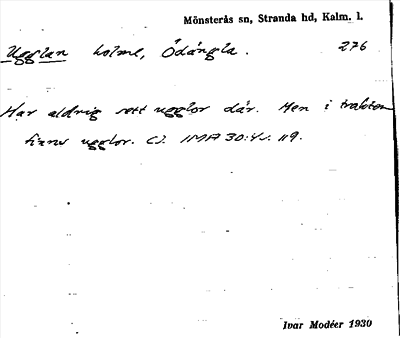 Mönsterås sn, Stranda hd, Kalm. l.
Ugglan holme, Ödängla. 276
Har aldrig sett ugglor där. Men i trakten
finns ugglor. IMA 30:4 s. 119.
Ivar Modéer 1930